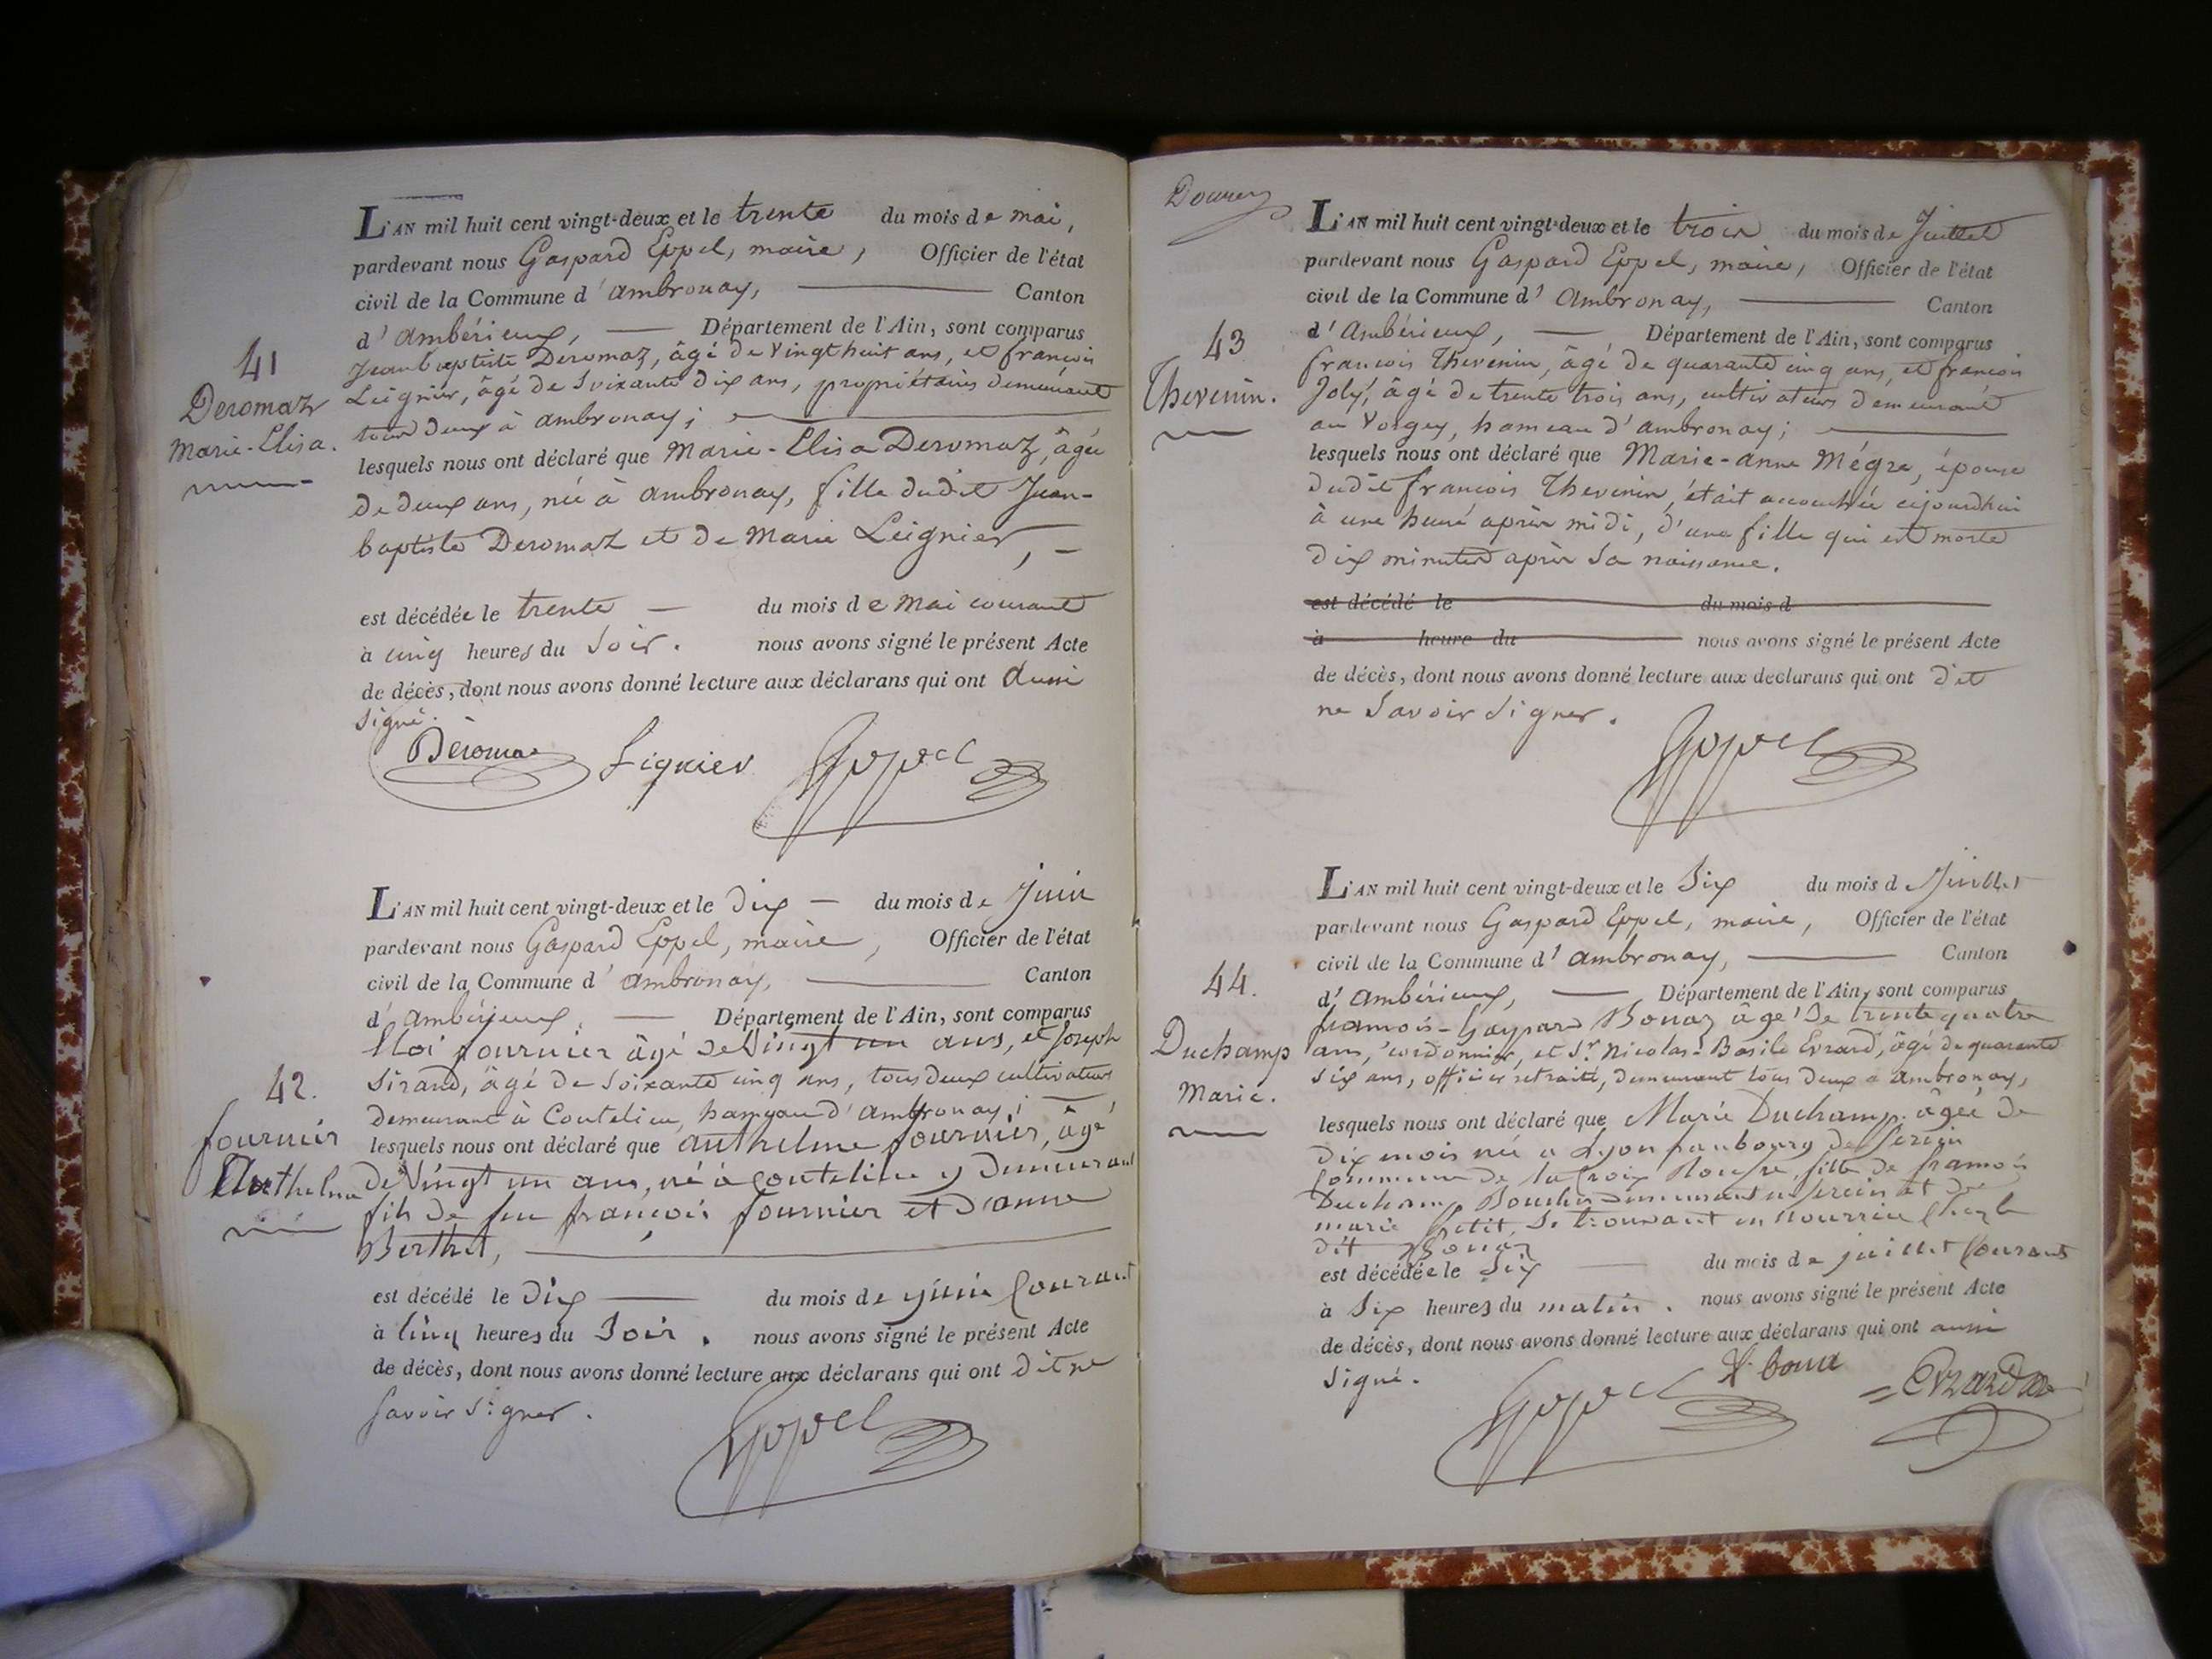 L'AN mil huit cent vingt-deux et le trente du mois de mai,
pardevant nous Gaspard Eppel, maire, Officier de l'état
civil de la Commune d'ambronay, Canton
d'ambérieux, Département de l'Ain, sont comparus
Jean baptiste Deromaz, âgé de vingt huit ans, et françois
Leignier, âgé de soixante dix ans, propriétaires demeurant
tous deux à ambronay;
41
Deromaz
Marie-Elisa.
lesquels nous ont déclaré que Marie-Elisa Deromaz, âgée
de deux ans, née à ambronay, fille dudit Jean-
baptiste Deromaz et de Marie Leignier,
est décédée le trente du mois de mai courant
à cinq heures du soir. nous avons signé le présent Acte
de décès, dont nous avons donné lecture aux déclarans qui ont aussi
signé.
Deromaz Lignier Eppel
L'AN mil huit cent vingt-deux et le dix du mois de juin
pardevant nous Gaspard Eppel, maire, Officier de l'état
civil de la Commune d'ambronay, Canton
d'ambérieux, Département de l'Ain, sont comparus
Eloi fournier âgé de vingt un ans, et Joseph
Sirand, âgé de soixante cinq ans, tous deux cultivateurs
demeurant à Coutelieu, hameau d'ambronay;
42.
fournier
Anthelme
lesquels nous ont déclaré que anthelme fournier, âgé
de vingt un ans, né à coutelieu y demeurant
fils de feu françois fournier et d'anne
Berthet,
est décédé le dix du mois de juin courant
à cinq heures du soir. nous avons signé le présent Acte
de décès, dont nous avons donné lecture aux déclarans qui ont dit ne
savoir signer.
Eppel
L'AN mil huit cent vingt-deux et le trois du mois de Juillet
pardevant nous Gaspard Eppel, maire, Officier de l'état
civil de la Commune d'ambronay, Canton
d'ambérieux, Département de l'Ain, sont comparus
43
Thevenin.
françois Thevenin, âgé de quarante cinq ans, et françois
Joly, âgé de trente trois ans, cultivateurs demeurant
au Vorgey, hameau d'ambronay;
lesquels nous ont déclaré que Marie-anne Mégre, épouse
dudit françois Thevenin, était accouchée cejourdhui
à une heure après midi, d'une fille qui est morte
dix minutes après sa naissance.
est décédé le du mois d
à heure du nous avons signé le présent Acte
de décès, dont nous avons donné lecture aux déclarans qui ont dit
ne savoir signer.
Eppel
L'AN mil huit cent vingt-deux et le six du mois de Juillet
pardevant nous Gaspard Eppel, maire, Officier de l'état
civil de la Commune d'ambronay, Canton
d'ambérieux, Département de l'Ain, sont comparus
44.
Duchamp
Marie.
françois-Gaspard Bonaz âgé de trente quatre
ans, cordonnier, et Sr. Nicolas-Basile Evrard, âgé de quarante
six ans, officier retraité, demeurant tous deux à ambronay,
lesquels nous ont déclaré que Marie Duchamp âgée de
dix mois née a Lyon faubourg de Serein
Commune de la Croix Rousse fille de françois
Duchamp Boucher demeurant a serein et de
marie Petit, se trouvant en nourrice chez le
dit Bonaz
est décédée le six du mois de juillet Courant
à six heures du matin. nous avons signé le présent Acte
de décès, dont nous avons donné lecture aux déclarans qui ont aussi
signé.
Eppel Evrard